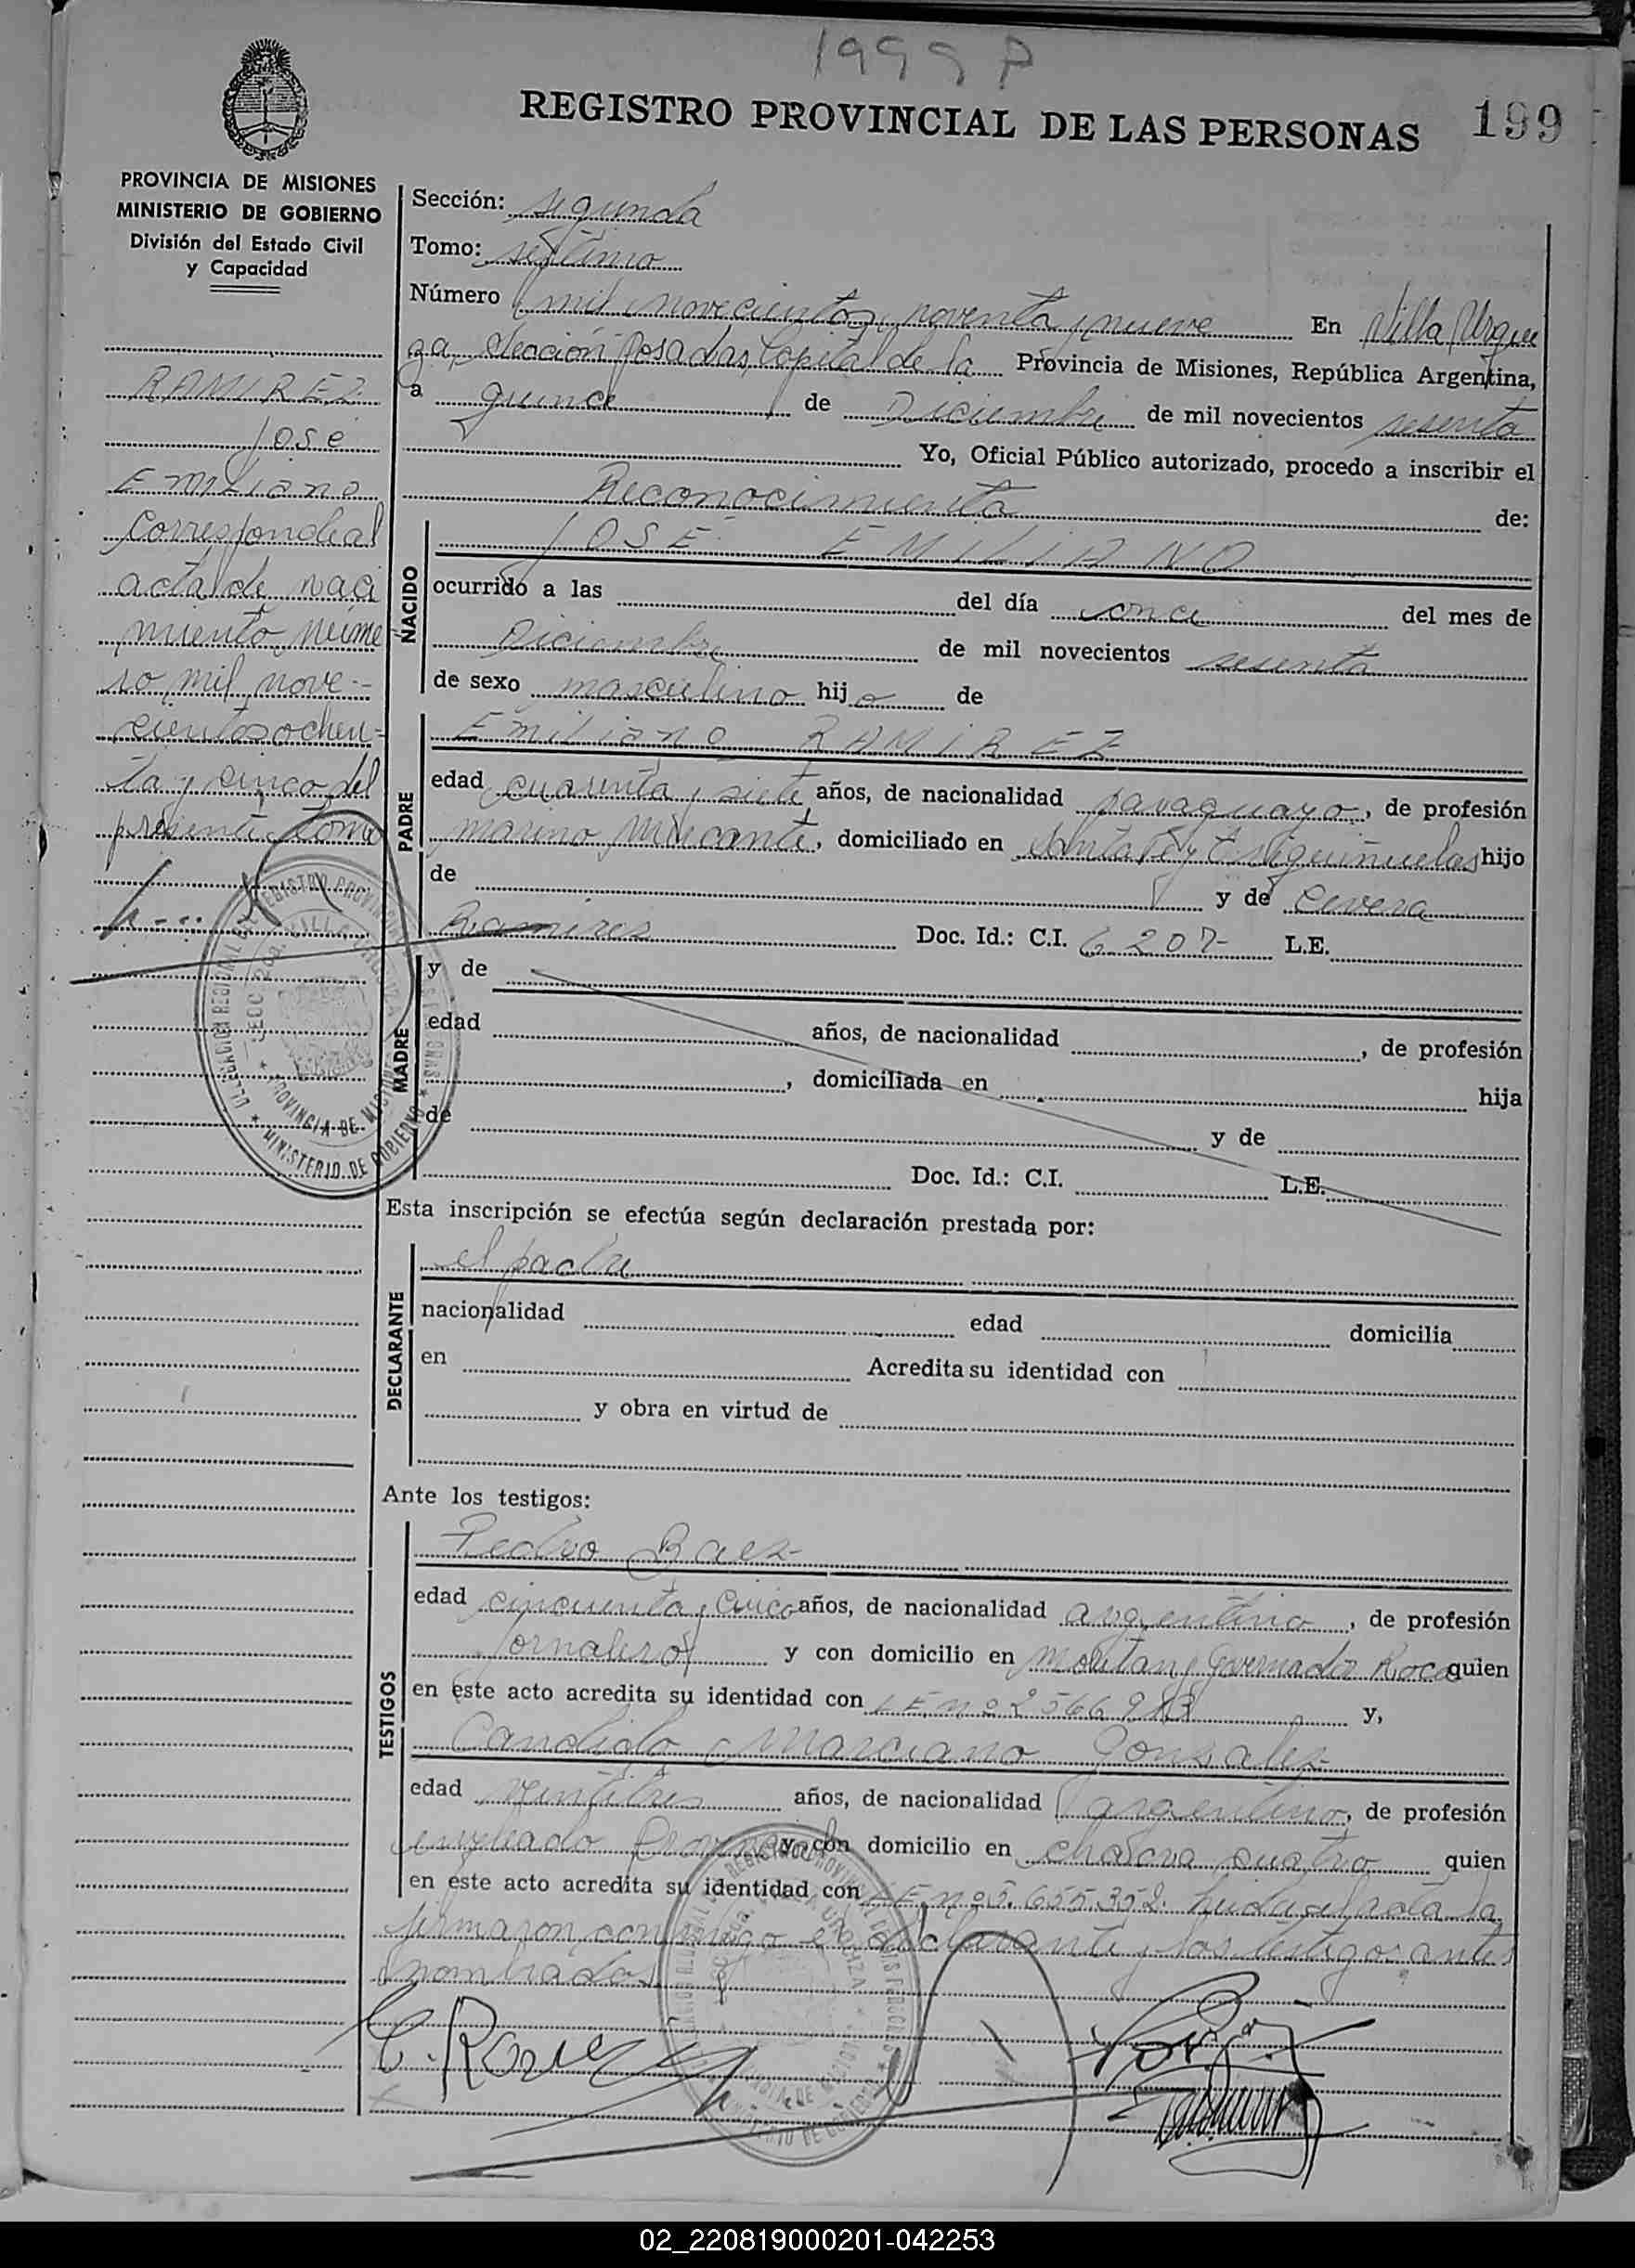 1999 P
REGISTRO PROVINCIAL DE LAS PERSONAS 199
PROVINCIA DE MISIONES
MINISTERIO DE GOBIERNO
División del Estado Civil
y Capacidad
RAMIREZ
José
Emiliano
Corresponde al
acta de naci
miento núme
ro mil nove-
cientos ochen-
ta y cinco del
presente tomo
Sección: segunda
Tomo: septimo
Número mil novecientos noventa y nueve En Villa Urqui
za, Sección Posadas, Capital de la Provincia de Misiones, República Argentina,
a quince de Diciembre de mil novecientos sesenta
Yo, Oficial Público autorizado, procedo a inscribir el
Reconocimiento de:
NACIDO
JOSE EMILIANO
ocurrido a las del día once del mes de
Diciembre de mil novecientos sesenta
de sexo masculino hijo de
PADRE
Emiliano RAMIREZ
edad cuarenta y siete años, de nacionalidad paraguayo, de profesión
marino mercante, domiciliado en Santa Fé y hijo
de y de
Ramirez Doc. Id.: C.I. 6207- L.E.
MADRE
y de
edad años, de nacionalidad , de profesión
, domiciliada en hija
de y de
Doc. Id.: C.I. L.E.
Esta inscripción se efectúa según declaración prestada por:
DECLARANTE
el padre
nacionalidad edad domicilia
en Acredita su identidad con
y obra en virtud de
Ante los testigos:
TESTIGOS
Pedro Baez
edad cincuenta y cinco años, de nacionalidad argentino, de profesión
jornalero y con domicilio en y Governador Roca quien
en este acto acredita su identidad con LE nº 2566913 y,
Candido Marciano Gonzalez
edad ventitres años, de nacionalidad argentino, de profesión
empleado Provincial y con domicilio en chacra cuatro quien
en este acto acredita su identidad con LE nº 5.655.352. Leida el acta la
firmaron conmigo el declarante y los testigos antes
nombrados
02_220819000201-042253